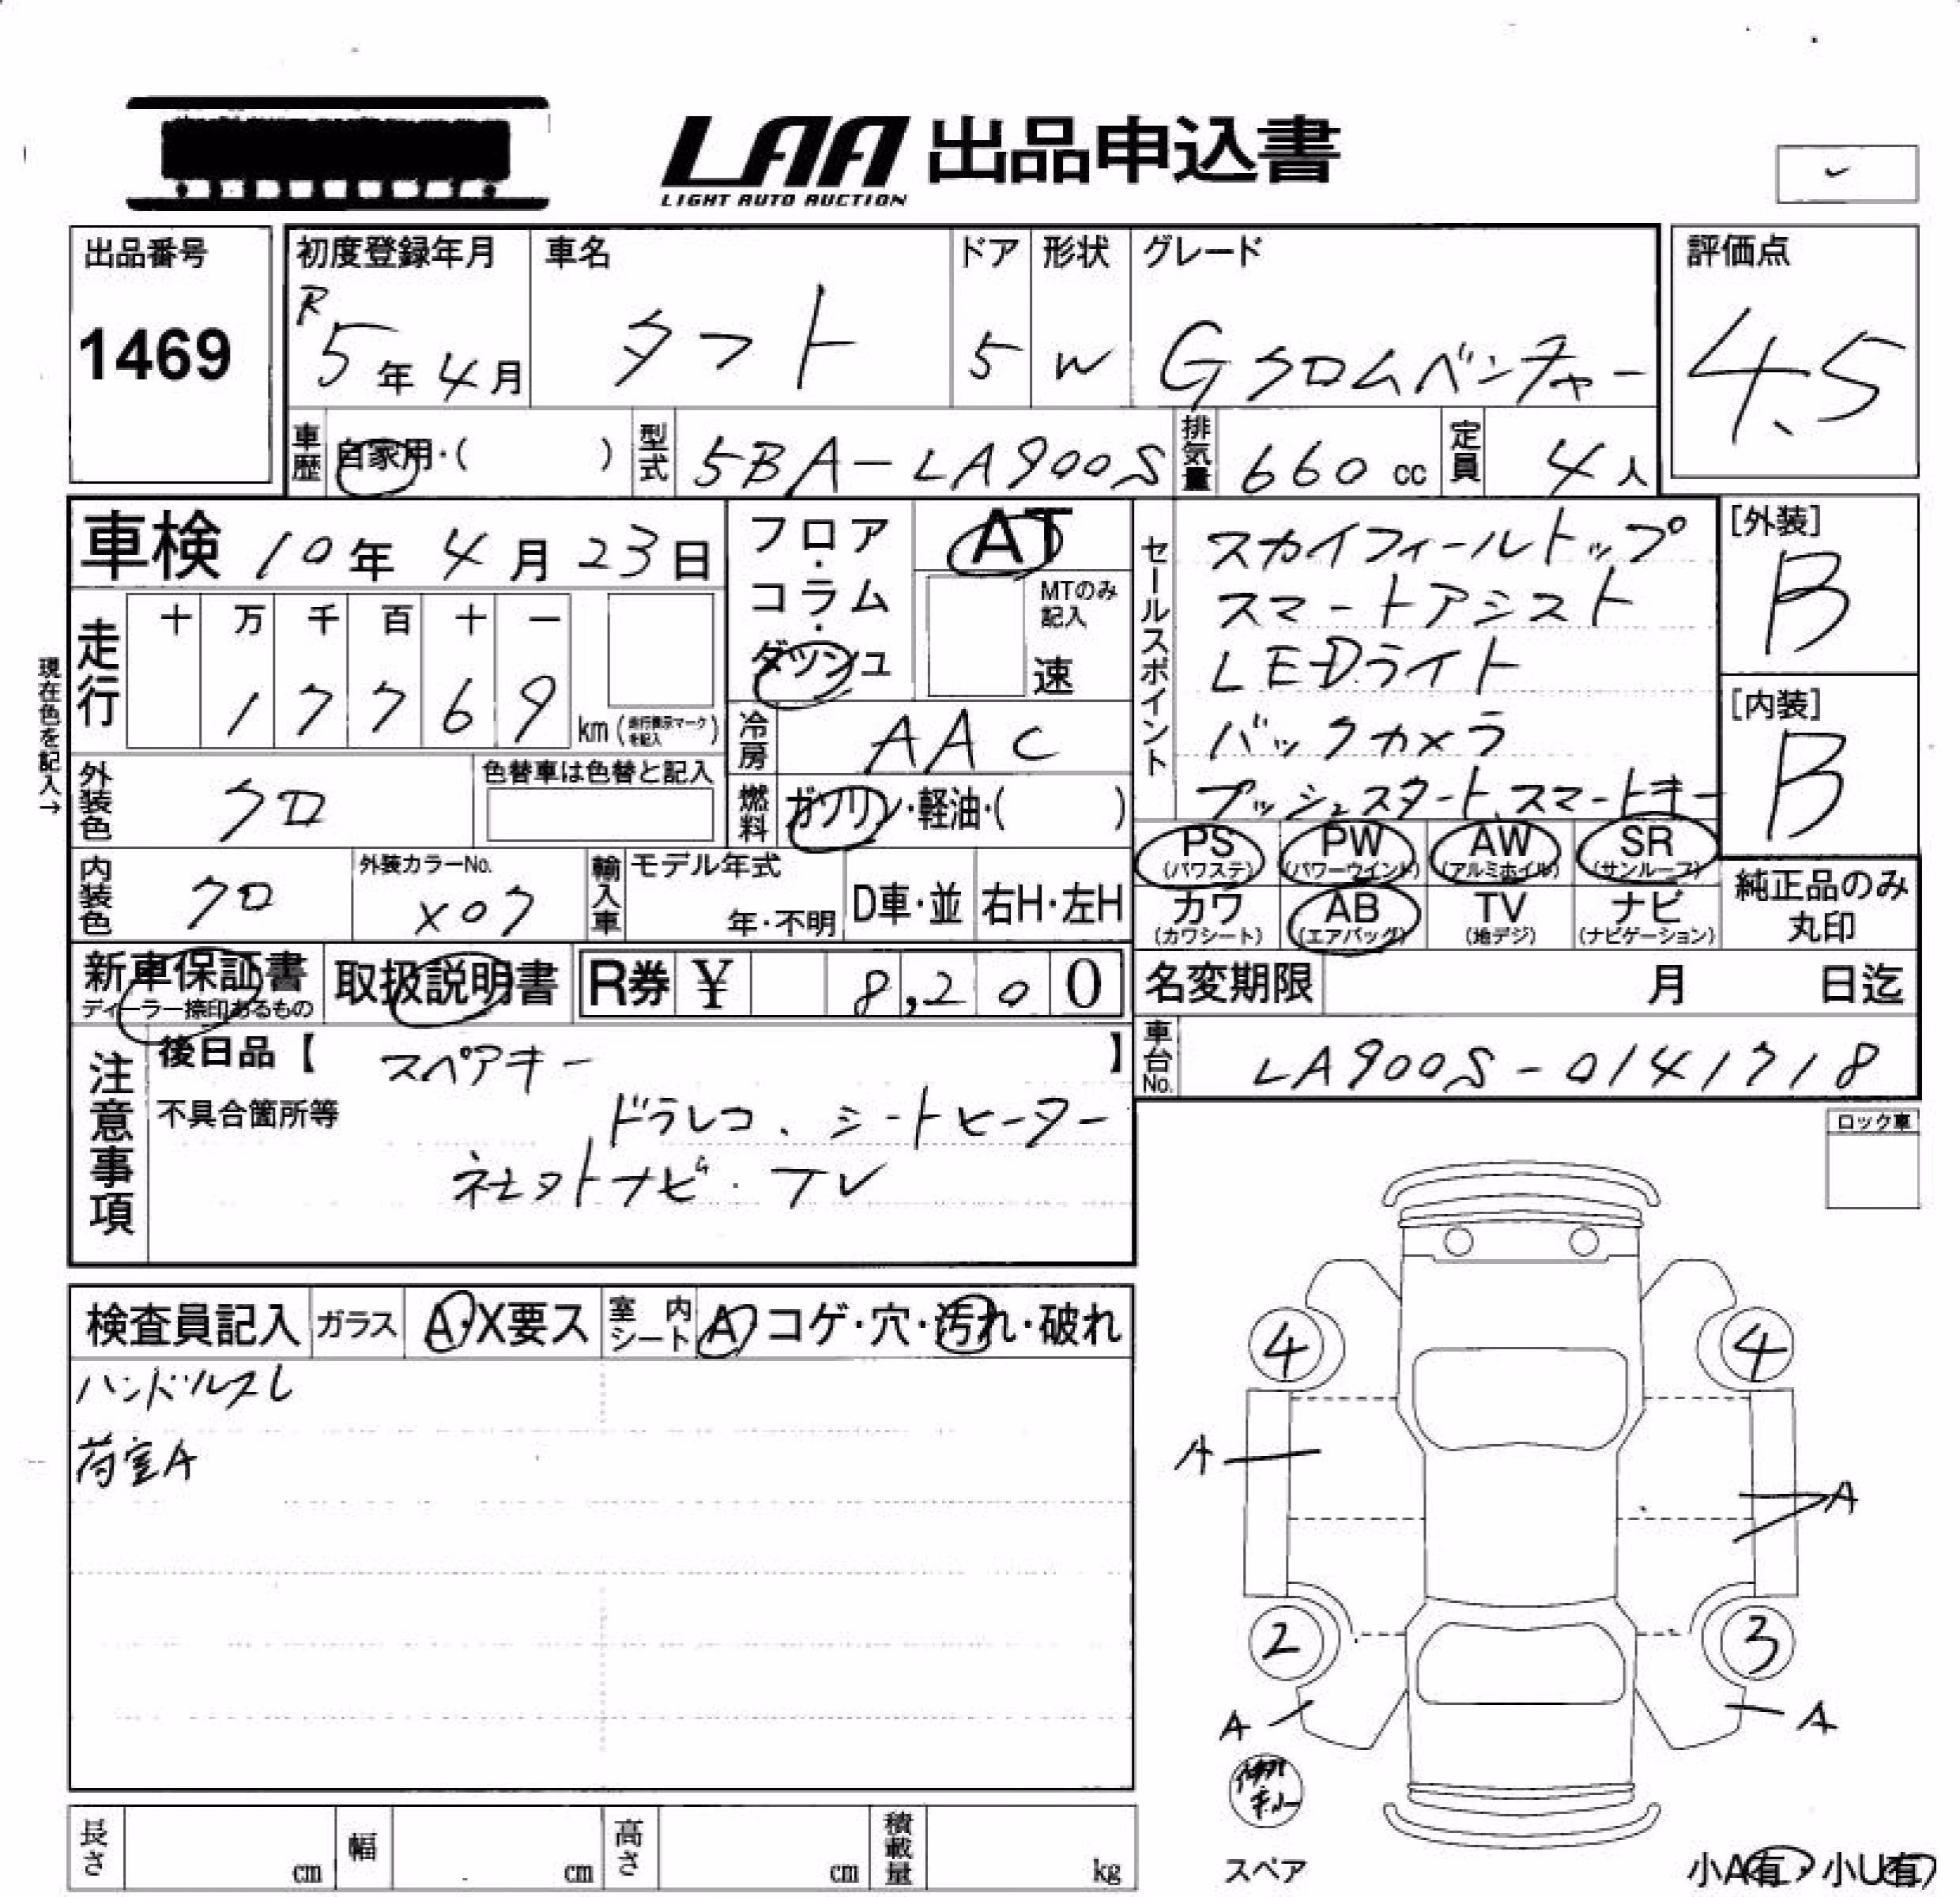 LAA 出品申込書
LIGHT AUTO AUCTION
出品番号
1469
初度登録年月
R5年4月
車名
タフト
ドア
5
形状
W
グレード
Gクロムベンチャー
評価点
4.5
車歴
自家用・( )
型式
5BA-LA900S
排気量
660cc
定員
4人
車検 10年4月23日
フロア・コラム・ダッシュ
AT
MTのみ記入
速
現在色を記入→
走行
十 万 千 百 十 一
1 7 7 6 9 km(走行表示マークを記入)
冷房
AAC
燃料
ガソリン・軽油・( )
外装色
クロ
色替車は色替と記入
内装色
クロ
外装カラーNo.
X07
輸入車
モデル年式
年・不明
D車・並
右H・左H
セールスポイント
スカイフィールトップ
スマートアシスト
LEDライト
バックカメラ
プッシュスタート、スマートキー
[外装]
B
[内装]
B
PS(パワステ)
PW(パワーウインド)
AW(アルミホイル)
SR(サンルーフ)
カワ(カワシート)
AB(エアバッグ)
TV(地デジ)
ナビ(ナビゲーション)
純正品のみ丸印
新車保証書
ディーラー捺印あるもの
取扱説明書
R券 ¥ 8,200
名変期限 月 日迄
車台No.
LA900S-0141718
注意事項
後日品【 スペアキー 】
不具合箇所等
ドラレコ、シートヒーター
社外ナビ・TV
ロック車
検査員記入
ガラス
A・X要ス
室内シート
A コゲ・穴・汚れ・破れ
ハンドルスレ
荷室A
4 4
A
A
2 3
A A
スペア
小A有・小U有
長さ cm
幅 cm
高さ cm
積載量 kg